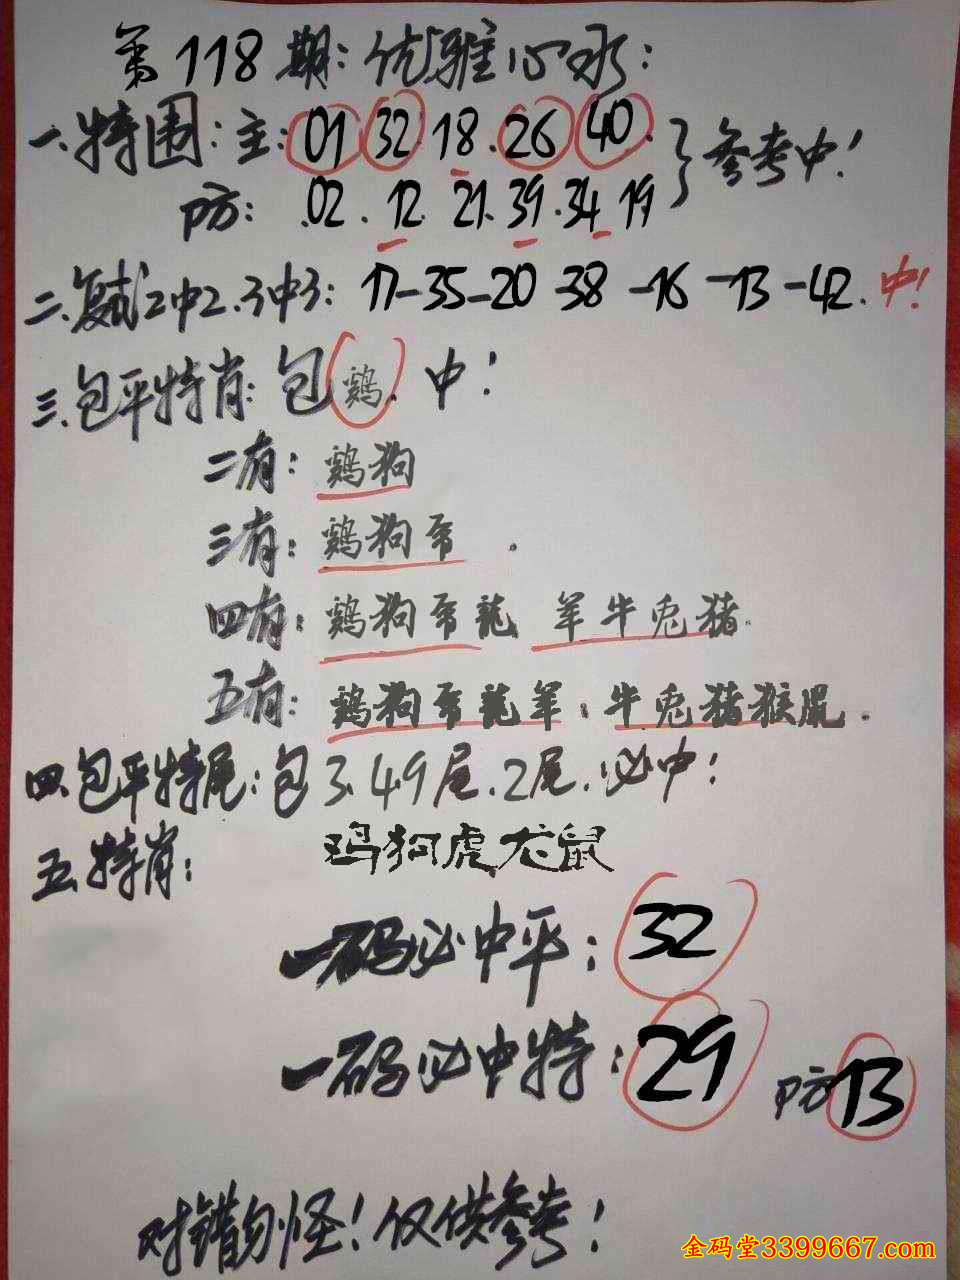 第118期：优雅心水：
一.特围：主：01 32 18.26 40.
防：.02.12 21.39.34 19 }参考中！
二.复式2中2.3中3：17-35-20 38-16-13-42.中！
三.包平特肖：包鸡.中！
二有：鷄狗
三有：鷄狗帍.
四有：鷄狗帍龍 羊牛兎猪.
五有：鷄狗帍龍羊：牛兎猪猴鼠.
四.包平特尾：包3.4.9尾.2尾.必中！
五.特肖：鸡狗虎龙鼠
一码必中平：32
一码必中特：29 防13
对错勿怪！仅供参考！
金码堂3399667.com